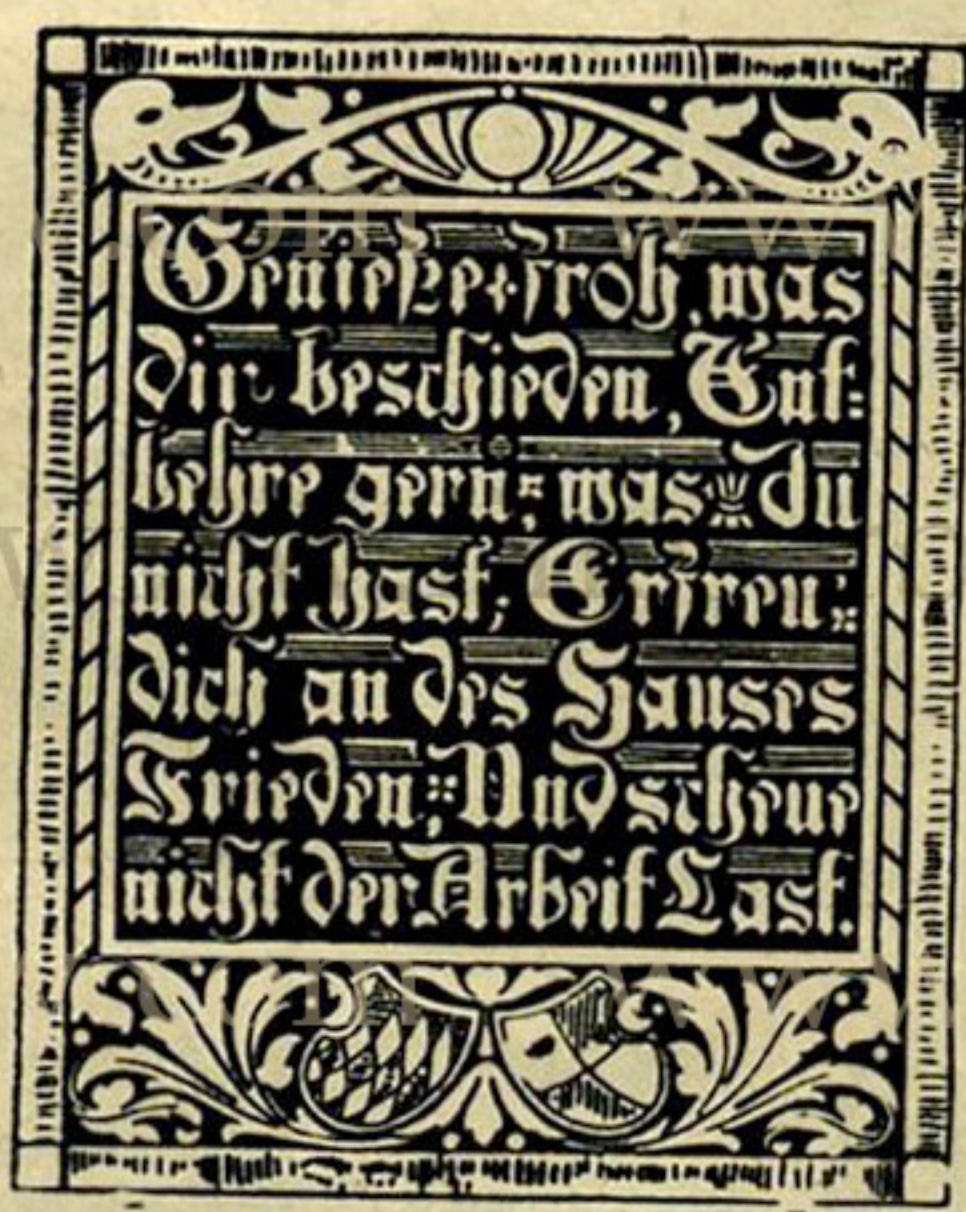 Genieße froh, was
dir beschieden, Ent-
behre gern, was du
nicht hast, Erfreu
dich an des Hauses
Frieden, Und scheue
nicht der Arbeit Last.